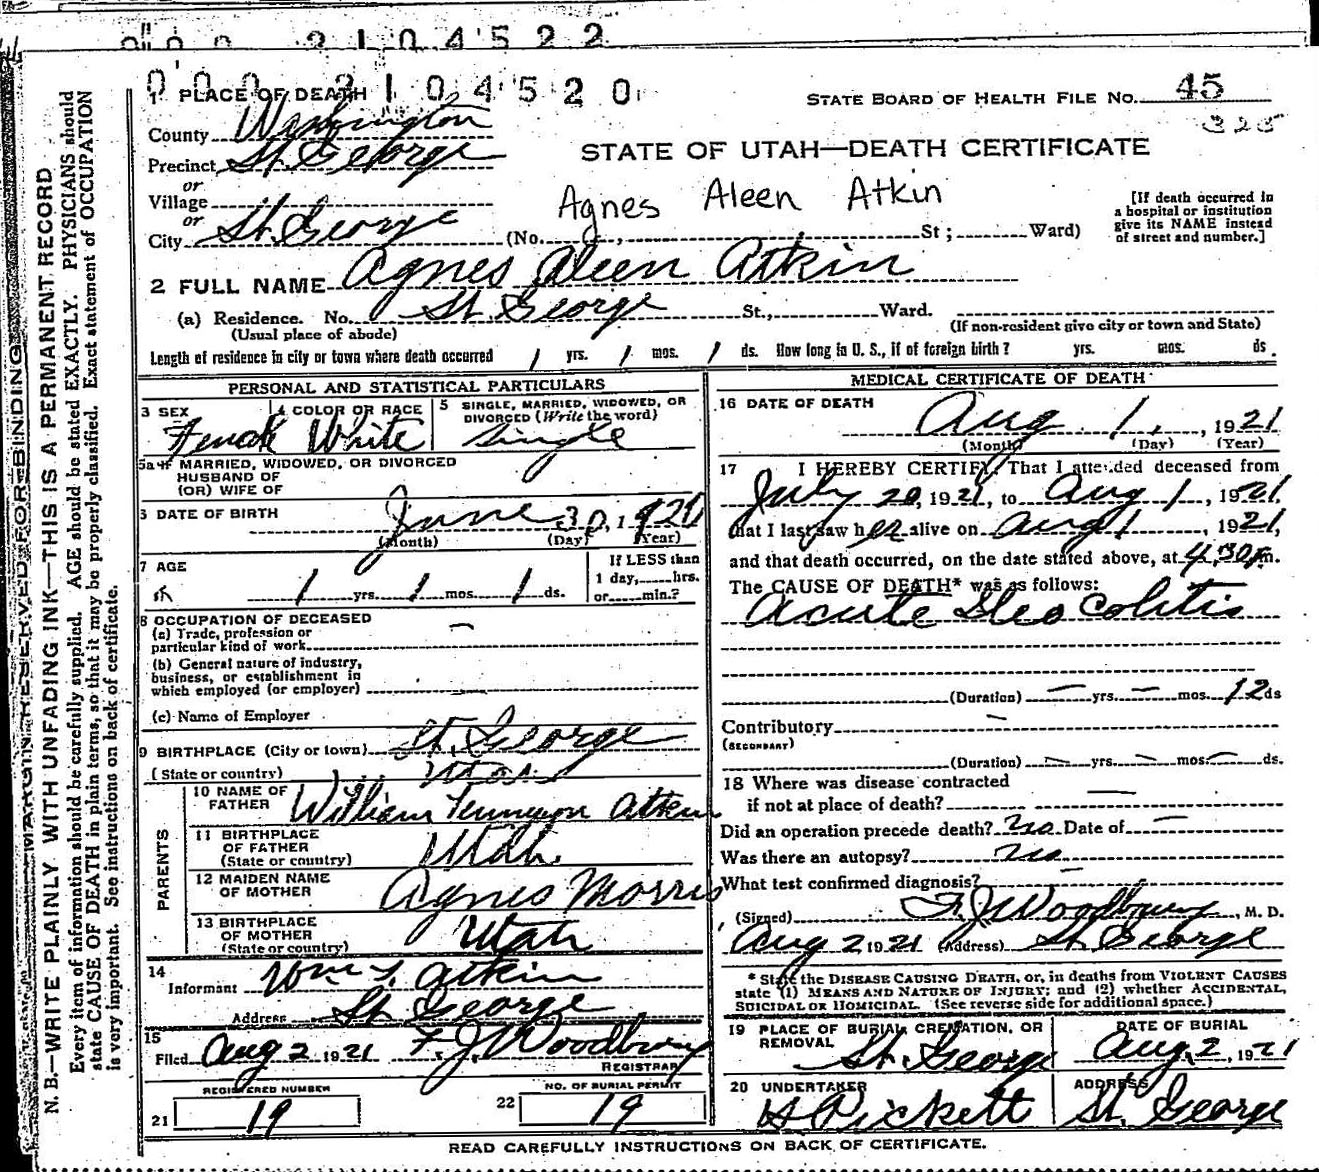 0 0 0 2 1 0 4 5 2 2
0 0 0 2 1 0 4 5 2 0
STATE BOARD OF HEALTH FILE NO. 45
325
STATE OF UTAH—DEATH CERTIFICATE
Agnes Aleen Atkin
1 PLACE OF DEATH
County Washington
Precinct St. George
or
Village
or
City St. George (No. , St ; Ward)
[If death occurred in
a hospital or institution
give its NAME instead
of street and number.]
2 FULL NAME Agnes Aleen Atkin
(a) Residence. No. St. George St., Ward.
(Usual place of abode) (If non-resident give city or town and State)
Length of residence in city or town where death occurred 1 yrs. 1 mos. 1 ds. How long in U. S., if of foreign birth? yrs. mos. ds.
PERSONAL AND STATISTICAL PARTICULARS
3 SEX 4 COLOR OR RACE 5 SINGLE, MARRIED, WIDOWED, OR
DIVORCED (Write the word)
Female White Single
5a If MARRIED, WIDOWED, OR DIVORCED
HUSBAND OF
(OR) WIFE OF
6 DATE OF BIRTH June 30, 1920
(Month) (Day) (Year)
7 AGE If LESS than
1 yrs. 1 mos. 1 ds. 1 day, hrs.
or min.?
8 OCCUPATION OF DECEASED
(a) Trade, profession or
particular kind of work —
(b) General nature of industry,
business, or establishment in
which employed (or employer) —
(c) Name of Employer
9 BIRTHPLACE (City or town) St. George
(State or country) Utah
PARENTS
10 NAME OF
FATHER William Tennyson Atkin
11 BIRTHPLACE
OF FATHER
(State or country) Utah
12 MAIDEN NAME
OF MOTHER Agnes Morris
13 BIRTHPLACE
OF MOTHER
(State or country) Utah
14
Informant Wm T. Atkin
Address St. George
15
Filed Aug 2 1921 F. J. Woodbury
REGISTRAR
REGISTERED NUMBER NO. OF BURIAL PERMIT
21 19 22 19
MEDICAL CERTIFICATE OF DEATH
16 DATE OF DEATH
Aug 1, , 1921
(Month) (Day) (Year)
17 I HEREBY CERTIFY, That I attended deceased from
July 20, 1921, to Aug 1, 1921,
that I last saw her alive on Aug 1 1921,
and that death occurred, on the date stated above, at 4.30 P.m.
The CAUSE OF DEATH* was as follows:
Acute Ileo Colitis
(Duration) — yrs. — mos. 12 ds
Contributory —
(SECONDARY)
(Duration) — yrs. — mos. — ds.
18 Where was disease contracted
if not at place of death? —
Did an operation precede death? no Date of —
Was there an autopsy? no
What test confirmed diagnosis? —
(Signed) F. J. Woodbury, M. D.
Aug 2 1921 (Address) St. George
* State the DISEASE CAUSING DEATH, or, in deaths from VIOLENT CAUSES
state (1) MEANS AND NATURE OF INJURY; and (2) whether ACCIDENTAL,
SUICIDAL OR HOMICIDAL. (See reverse side for additional space.)
19 PLACE OF BURIAL, CREMATION, OR
REMOVAL St. George
DATE OF BURIAL
Aug. 2, 1921
20 UNDERTAKER
Pickett
ADDRESS
St. George
READ CAREFULLY INSTRUCTIONS ON BACK OF CERTIFICATE.
MARGIN RESERVED FOR BINDING
N. B.—WRITE PLAINLY WITH UNFADING INK—THIS IS A PERMANENT RECORD
Every item of information should be carefully supplied. AGE should be stated EXACTLY. PHYSICIANS should
state CAUSE OF DEATH in plain terms, so that it may be properly classified. Exact statement of OCCUPATION
is very important. See instructions on back of certificate.